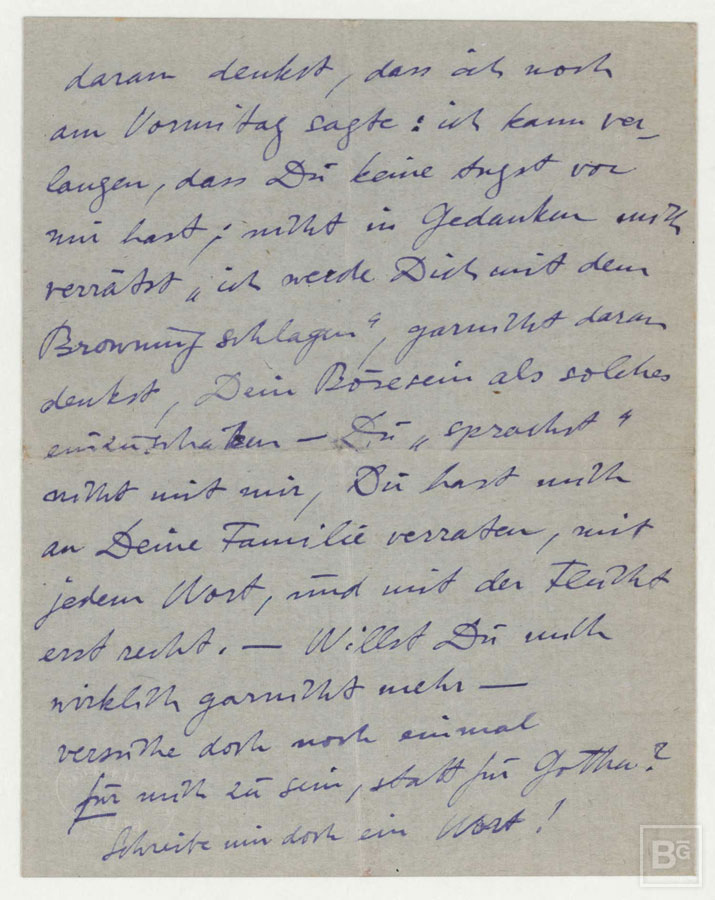 daran denkst, dass ich noch
am Vormitag sagte: ich kann ver-
langen, dass Du keine Angst vor
mir hast; nicht in Gedanken mich
verrätst „ich werde Dich mit dem
Browning schlagen“, garnicht daran
denkst, Dein Bösesein als solches
einzuschätzen — Du „sprachst“
nicht mit mir, Du hast mich
an Deine Familie verraten, mit
jedem Wort, und mit der Flucht
erst recht. — Willst Du mich
wirklich garnicht mehr —
versuche doch noch einmal
für mich zu sein, statt für Gotha?
Schreibe mir doch ein Wort!
BG